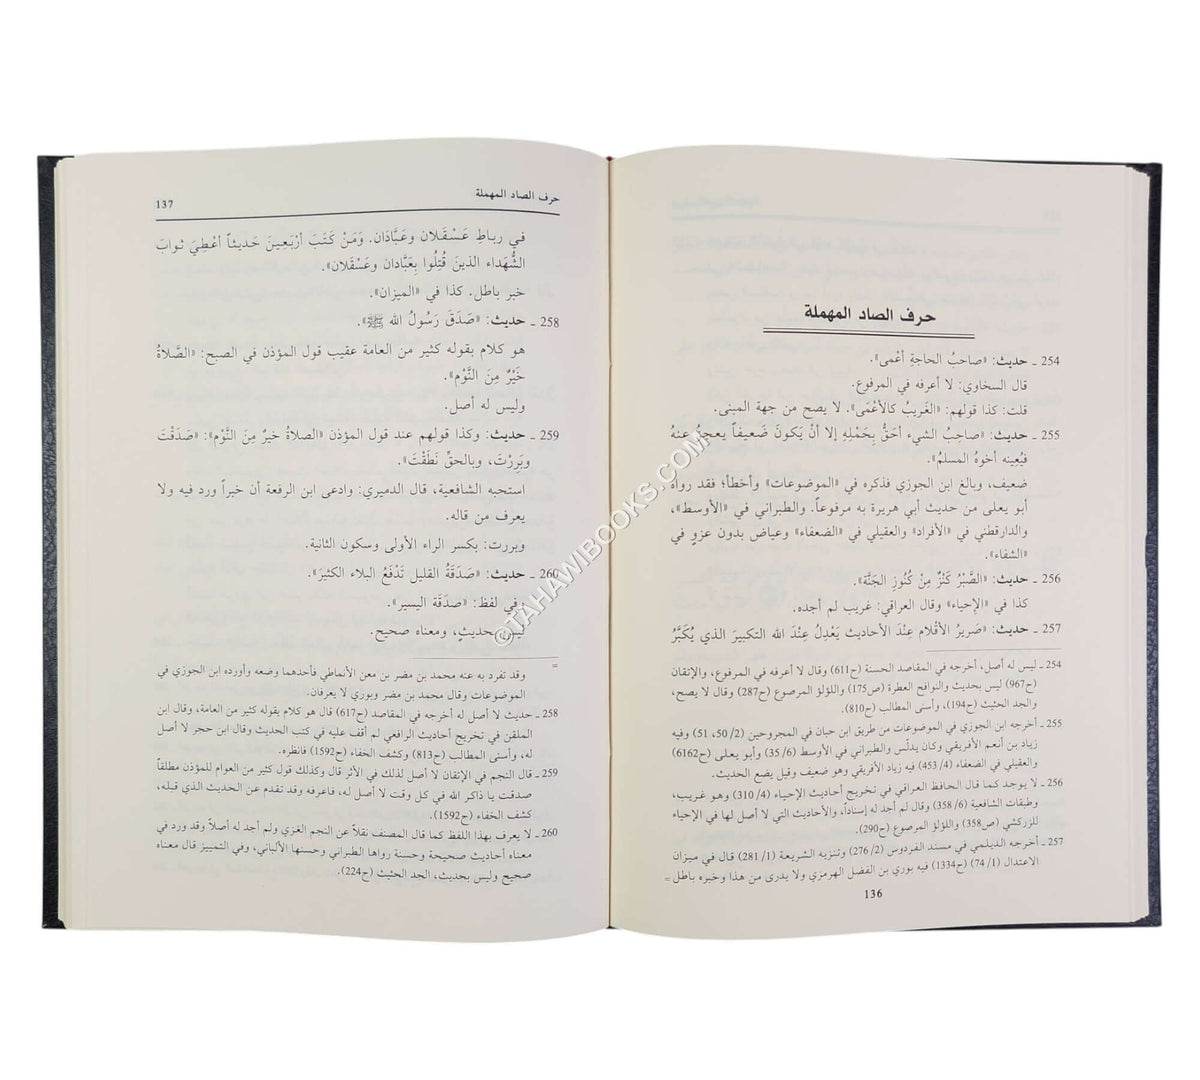 حرف الصاد المهملة
254 ـ حديث: «صاحبُ الحاجةِ أعْمى».
قال السخاوي: لا أعرفه في المرفوع.
قلت: كذا قولهم: «الغَريبُ كالأعْمَى». لا يصح من جهة المبنى.
255 ـ حديث: «صاحِبُ الشيء أحَقُّ بِحَمْلِهِ إلا أنْ يَكونَ ضَعيفاً يعجزُ عنهُ
فيُعِينه أخوهُ المسلمُ».
ضعيف، وبالغ ابن الجوزي فذكره في «الموضوعات» وأخطأ؛ فقد رواه
أبو يعلى من حديث أبي هريرة به مرفوعاً. والطبراني في «الأوسط»،
والدارقطني في «الأفراد» والعقيلي في «الضعفاء» وعياض بدون عزوٍ في
«الشفاء».
256 ـ حديث: «الصَّبْرُ كَنْزٌ مِنْ كُنُوزِ الجَنَّة».
كذا في «الإحياء» وقال العراقي: غريب لم أجده.
257 ـ حديث: «صَريرُ الأقْلامِ عِنْدَ الأحاديث يَعْدِلُ عِنْدَ الله التكبيرَ الذي يُكَبَّرُ
254 ـ ليس له أصل، أخرجه في المقاصد الحسنة (ح611) وقال لا أعرفه في المرفوع، والإتقان
(ح967) ليس بحديث والنوافح العطرة (ص175) واللؤلؤ المرصوع (ح287) وقال لا يصح،
والجد الحثيث (ح194)، وأسنى المطالب (ح810).
255 ـ أخرجه ابن الجوزي في الموضوعات من طريق ابن حبان في المجروحين (2/ 50، 51) وفيه
زياد بن أنعم الأفريقي وكان يدلّس والطبراني في الأوسط (6/ 35) وأبو يعلى (ح6162)
والعقيلي في الضعفاء (4/ 453) فيه زياد الأفريقي وهو ضعيف وقيل يضع الحديث.
256 ـ لا يوجد كما قال الحافظ العراقي في تخريج أحاديث الإحياء (4/ 310) وهو غريب،
وطبقات الشافعية (6/ 358) وقال لم أجد له إسناداً، والأحاديث التي لا أصل لها في الإحياء
للزركشي (ص358) واللؤلؤ المرصوع (ح290).
257 ـ أخرجه الديلمي في مسند الفردوس (2/ 276) وتنزيه الشريعة (1/ 281) قال في ميزان
الاعتدال (1/ 74) (ح1334) فيه بوري بن الفضل الهرمزي ولا يدرى من هذا وخبره باطل =
136
حرف الصاد المهملة 137
في رباطِ عَسْقَلان وعَبَّادَان. وَمَنْ كَتَبَ أرْبَعِينَ حَديثاً أعْطِيَ ثوابَ
الشُّهَداء الذينَ قُتِلُوا بِعَبَّادَان وعَسْقَلان».
خبر باطل. كذا في «الميزان».
258 ـ حديث: «صَدَقَ رَسُولُ الله ﷺ».
هو كلام بقوله كثير من العامة عقيب قول المؤذن في الصبح: «الصَّلاةُ
خَيْرٌ مِنَ النَّوْم».
وليس له أصل.
259 ـ حديث: وكذا قولهم عند قول المؤذن «الصلاةُ خيرٌ مِنَ النَّوْم»: «صَدَقْتَ
وبَرِرْتَ، وبالحقِّ نَطَقْتَ».
استحبه الشافعية، قال الدميري: وادعى ابن الرفعة أن خبراً ورد فيه ولا
يعرف من قاله.
وبررت: بكسر الراء الأولى وسكون الثانية.
260 ـ حديث: «صَدَقَةُ القليل تَدْفَعُ البلاء الكثيرَ».
وفي لفظ: «صدَقَة اليسير».
ليس بحديثٍ، ومعناه صحيح.
=
وقد تفرد به عنه محمد بن مضر بن معن الأنماطي فأحدهما وضعه وأورده ابن الجوزي في
الموضوعات وقال محمد بن مضر وبوري لا يعرفان.
258 ـ حديث لا أصل له أخرجه في المقاصد (ح617) قال هو كلام بقوله كثير من العامة، وقال ابن
الملقن في تخريج أحاديث الرافعي لم أقف عليه في كتب الحديث وقال ابن حجر لا أصل
له، وأسنى المطالب (ح813) وكشف الخفاء (ح1592) فانظره.
259 ـ قال النجم في الإتقان لا أصل لذلك في الأثر قال وكذلك قول كثير من العوام للمؤذن مطلقاً
صدقت يا ذاكر الله في كل وقت لا أصل له، فاعرفه وقد تقدم عن الحديث الذي قبله،
كشف الخفاء (ح1592).
260 ـ لا يعرف بهذا اللفظ كما قال المصنف نقلاً عن النجم الغزي ولم أجد له أصلاً وقد ورد في
معناه أحاديث صحيحة وحسنة رواها الطبراني وحسنها الألباني، وفي التمييز قال معناه
صحيح وليس بحديث، الجد الحثيث (ح224).
©TAHAWIBOOKS.COM